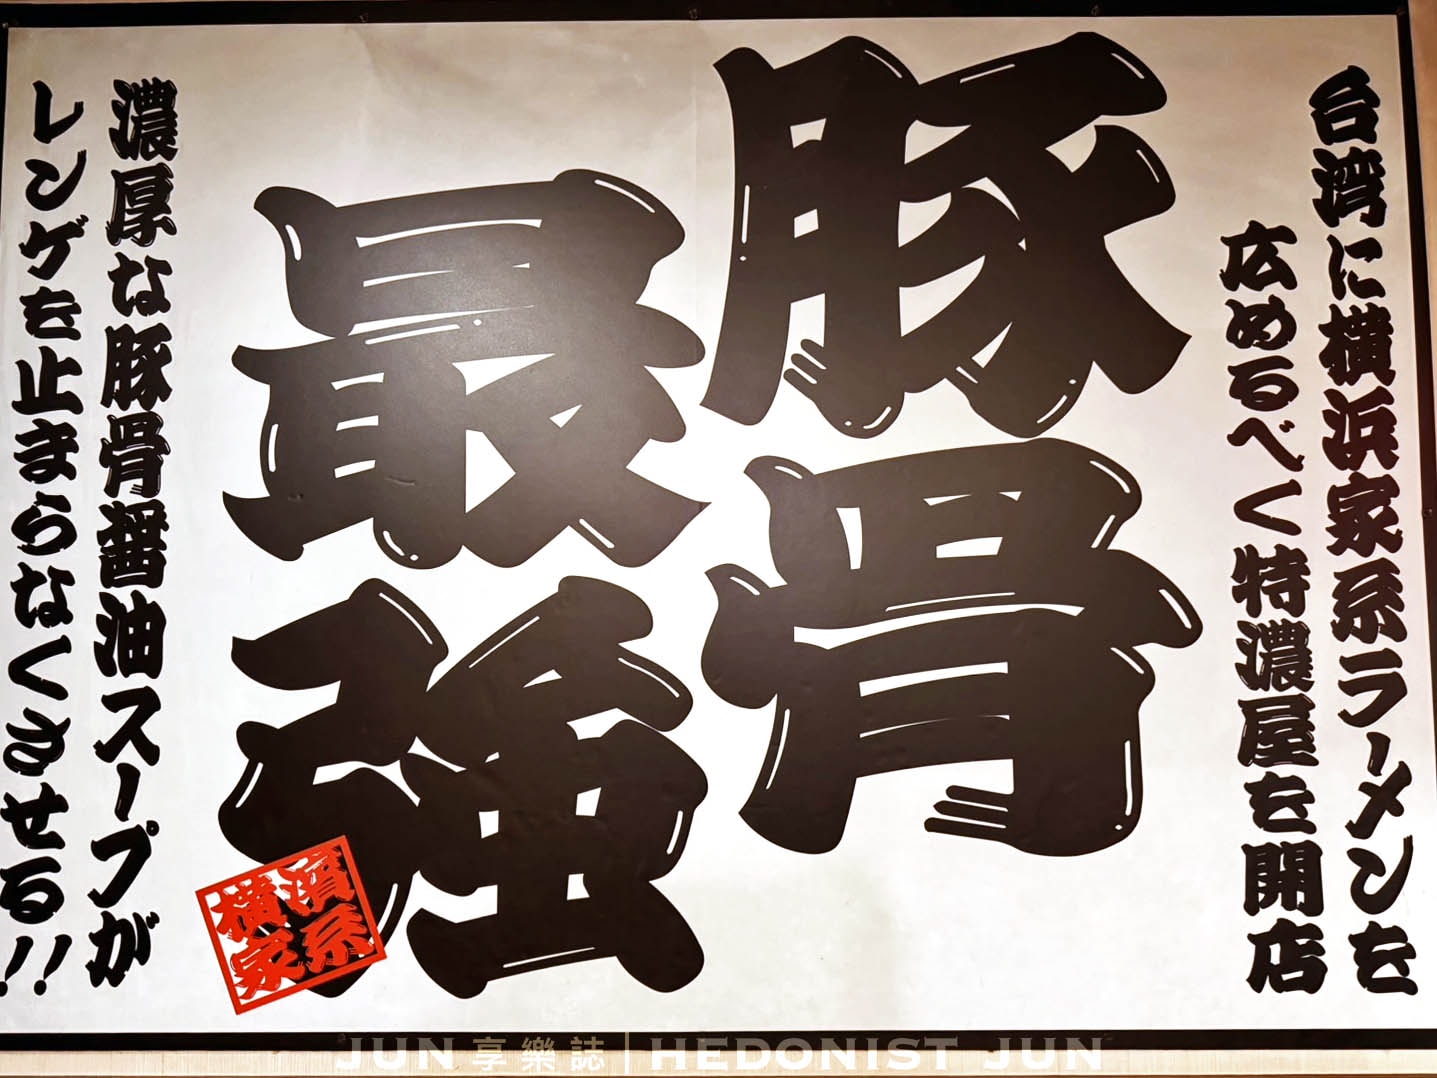 台湾に横浜家系ラーメンを
広めるべく特濃屋を開店
豚骨
最強
濃厚な豚骨醤油スープが
レンゲを止まらなくさせる!!
横濱
家系
JUN享樂誌|HEDONIST JUN